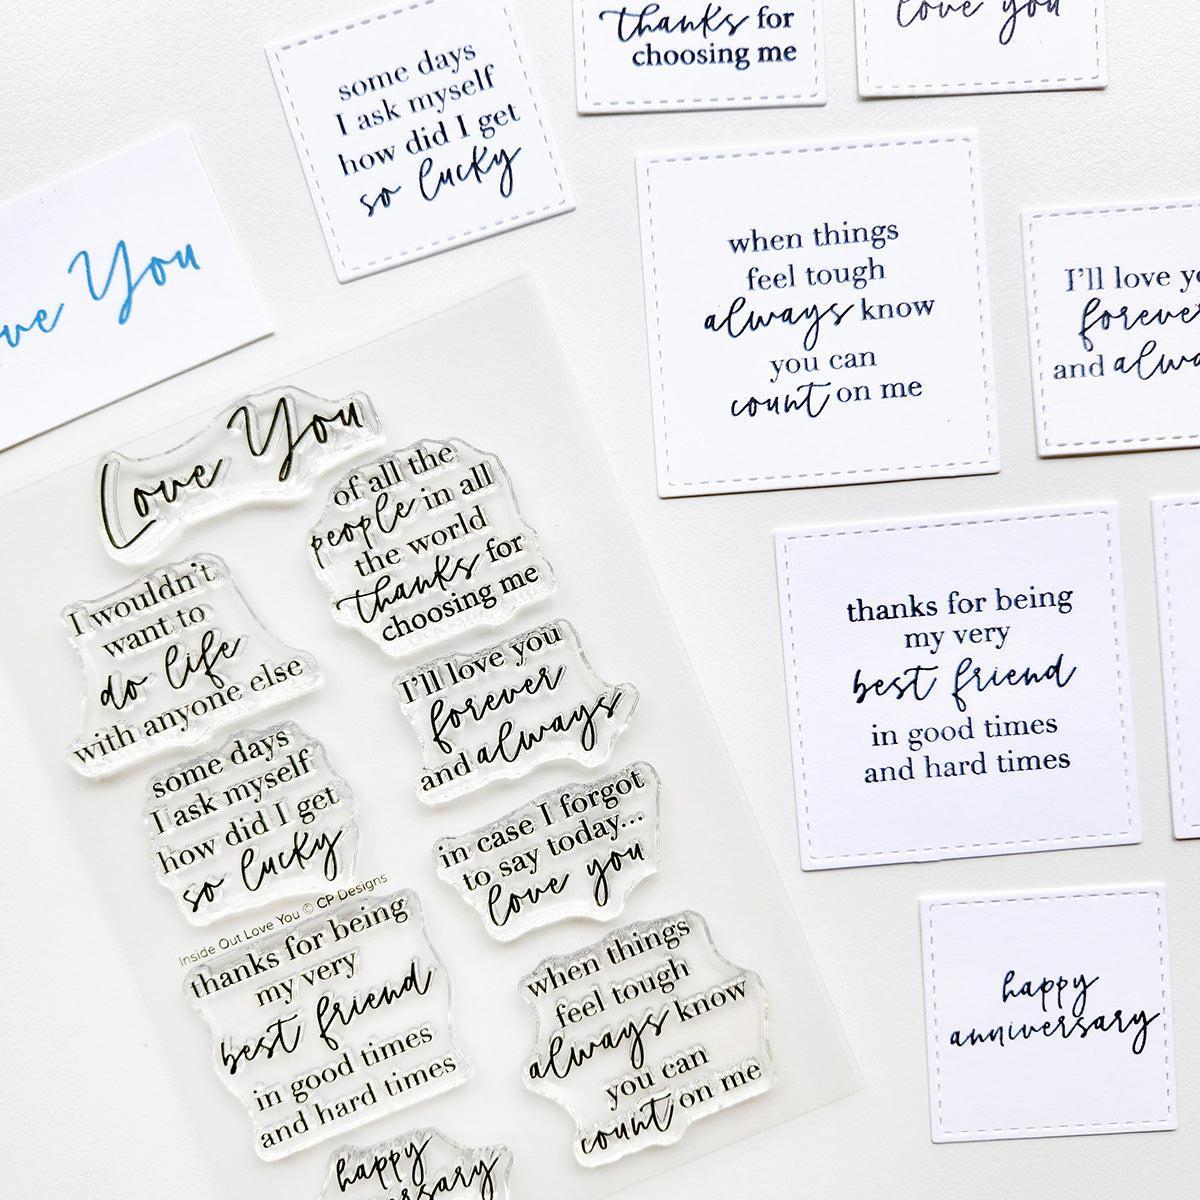 some days
I ask myself
how did I get
so lucky
thanks for
choosing me
love you
You
when things
feel tough
always know
you can
count on me
I'll love
and
thanks for being
my very
best friend
in good times
and hard times
happy
anniversary
Love You
of all the
people in all
the world
thanks for
choosing me
I wouldn't
want to
do life
with anyone else
I'll love you
forever
and always
some days
I ask myself
how did I get
so lucky
in case I forgot
to say today...
love you
Inside Out Love You © CP Designs
thanks for being
my very
best friend
in good times
and hard times
when things
feel tough
always know
you can
count on me
happy